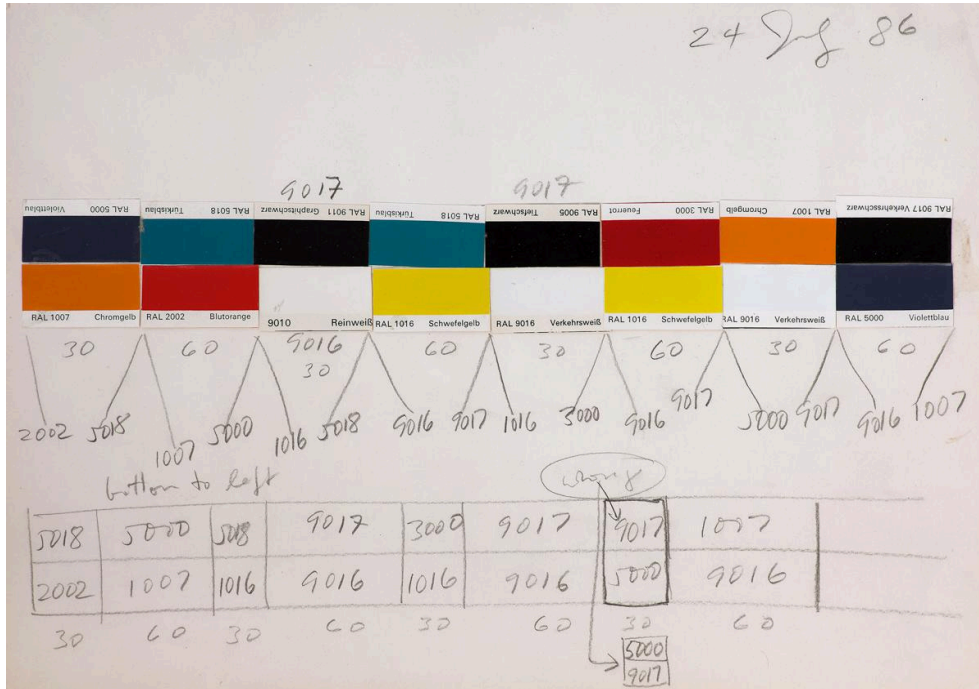 24 July 86
9017 9017
RAL 5000 Violettblau RAL 5018 Türkisblau RAL 9011 Graphitschwarz RAL 5018 Türkisblau RAL 9005 Tiefschwarz RAL 3000 Feuerrot RAL 1007 Chromgelb RAL 9017 Verkehrsschwarz
RAL 1007 Chromgelb RAL 2002 Blutorange 9010 Reinweiß RAL 1016 Schwefelgelb RAL 9016 Verkehrsweiß RAL 1016 Schwefelgelb RAL 9016 Verkehrsweiß RAL 5000 Violettblau
30 60 9016 60 30 60 30 60
30
2002 5018 1007 5000 1016 5018 9016 9017 1016 3000 9016 9017 5000 9017 9016 1007
bottom to left
wrong
5018 5000 5018 9017 3000 9017 9017 1007
2002 1007 1016 9016 1016 9016 5000 9016
30 60 30 60 30 60 30 60
5000
9017